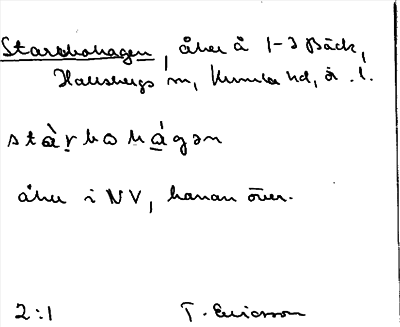 Starbohagen, åker å 1-3 Bäck,
Hallsbergs sn, Kumla hd, ör. l.
stàrbohágən
åker i NV, hanan över.
2:1 T. Ericsson